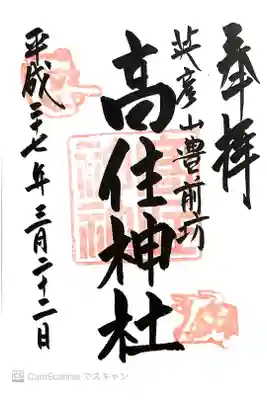 奉拝
英彦山豊前坊
高住神社
平成二十七年三月二十二日
CS CamScanner でスキャン